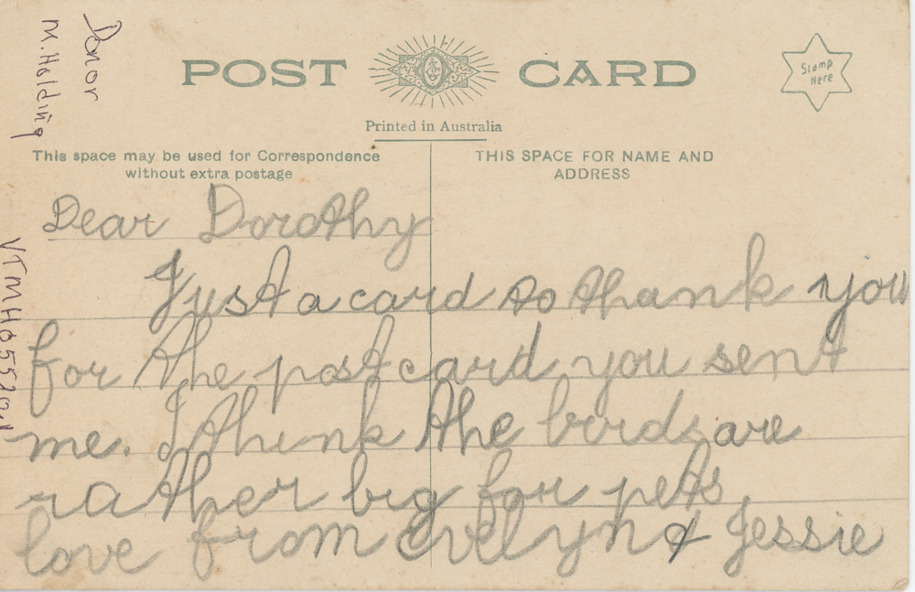 Donor
M. Holding
POST CARD
Stamp
Here
Printed in Australia
This space may be used for Correspondence
without extra postage
THIS SPACE FOR NAME AND
ADDRESS
Dear Dorothy
Just a card to thank you
for the post card you sent
me. I think the birds are
rather big for pets
love from Evelyn & Jessie